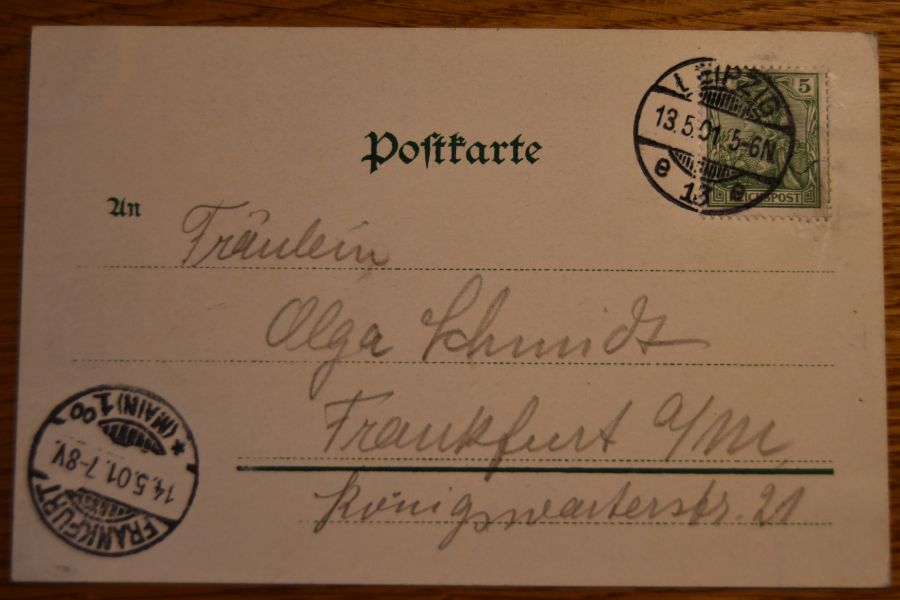 Postkarte
LEIPZIG
13.5.01. 5-6N
e 13 e
5
REICHSPOST
An
Fräulein
Olga Schmidt
Frankfurt a/M,
Königswarterstr. 21
FRANKFURT
14.5.01. 7-8V.
*(MAIN) 1 oo